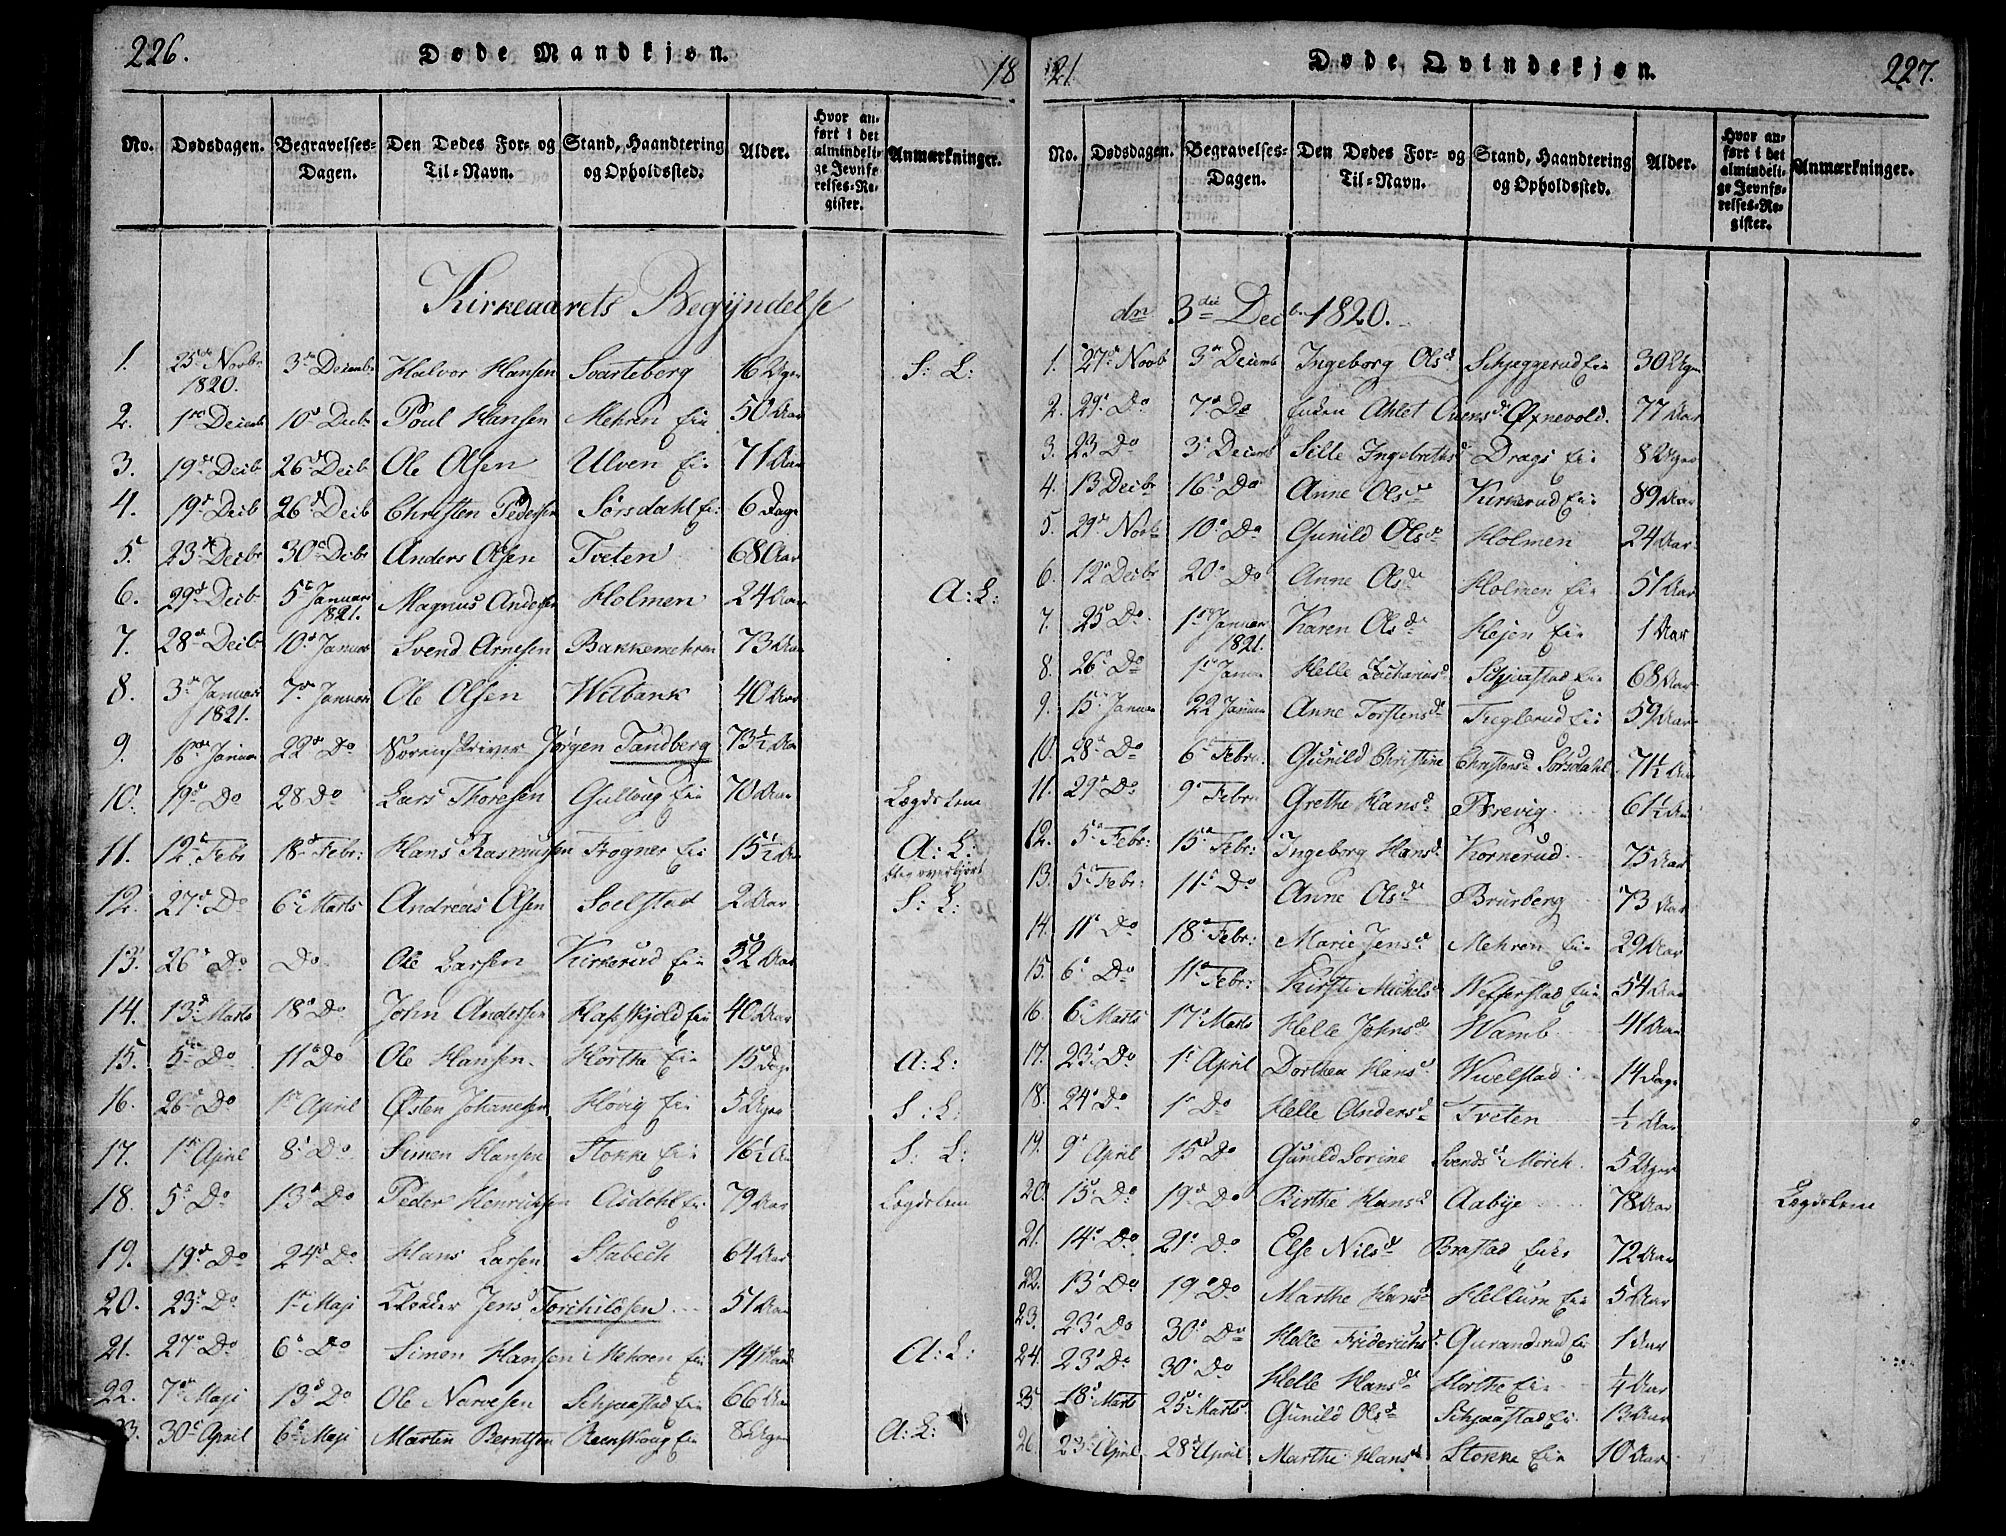 226.
Døde Mandkjøn.
18
No. Dødsdagen. Begravelses-Dagen. Den Dødes For- og Til-Navn. Stand, Haandtering og Opholdssted. Alder. Hvor anført i det almindelige Jevnførelses-Register. Anmærkninger.
Kirkeaarets Begyndelse
1. 25de Novbr 1820. 3de Decemb Halvor Hansen Svarteborg 16 Uger S: L:
2. 1ste Decemb 10de Decbr Poul Hansen Mehren Eie 50 Aar
3. 19de Decbr 26de Decbr Ole Olsen Ulven Eie 71 Aar
4. 19de Decb 26de Decb Christen Pedersen Sørsdahl Ei: 6 Dage
5. 23de Decbr 30de Decbr Anders Olsen Tveten 68 Aar
6. 29de Decb 5te Januar 1821. Magnus Andersen Holmen 24 Aar A: L:
7. 28de Decb 10de Januar Svend Arnesen Bakkemehren 73 Aar
8. 3de Januar 1821. 7de Januar Ole Olsen Wilbank 40 Aar
9. 16de Januar 22de Do Sorenskriver Jørgen Tandberg 73½ Aar
10. 19de Do 28 Do Lars Thoresen Gulloug Eie 70 Aar Lægdslem
11. 12te Febr 18de Febr: Hans Rasmussen Frogner Eie 15½ Aar A: L:
12. 27de Do 6te Marts Andreas Olsen Solstad 2 Aar S: L:
13. 26de Do Do Ole Larsen Kirkerud Eie 52 Aar
14. 13de Marts 18de Do John Andersen Eie 40 Aar
15. 5te Do 11te Do Ole Hansen Horthe Eie 15 Dage A: L:
16. 26de Do 1ste April Østen Johanesen Høvig Eie 5 Uger S: L:
17. 1ste April 8de Do Simen Hansen Stokke Eie 16½ Aar S: L:
18. 5te Do 13de Do Peder Henriksen Asdøhl Eie 79 Aar Lægdslem
19. 19de Do 24de Do Hans Larsen Stabech 64 Aar
20. 23de Do 1ste Maji Klokker Jens Torchilsen 51 Aar
21. 27de Do 6te Do Simen Hansen Mehren Eie 14 A: L:
22. 7de Maji 13de Do Ole Narvesen Schjaastad Eie 66 Aar
23. 30te April 6te Maji Martin Berntsen Eie 8 Uger A: L:
21
Døde Qvindekjøn.
227.
No. Dødsdagen. Begravelses-Dagen. Den Dødes For- og Til-Navn. Stand, Haandtering og Opholdssted. Alder. Hvor anført i det almindelige Jevnførelses-Register. Anmærkninger.
dn 3die Decb. 1820.
1. 27de Novb 3de Decemb Ingeborg Olsd Schjeggerud Eie 30 Uger
2. 29de Do 7de Do Enken Ahlet Ovensd Øxnevold. 77 Aar
3. 23 Do 3de Decemb Sille Ingebrethsd Drags Eie 8 Uger
4. 13 Decbr 16de Do Anne Olsd Kirkerud Eie 89 Aar
5. 29de Novb 10de Do Gunild Olsd Holmen 24 Aar
6. 12te Decbr 20de Do Anne Olsd Holmen Eie 51 Aar
7. 25de Do 1ste Januar 1821. Karen Olsd Hejen Eie 1 Aar
8. 26de Do 1ste Januar Helle Zachariasd Schjaastad Eie 68 Aar
9. 15de Januar 22 Januar Anne Torstensd Teglerud Eie 59 Aar
10. 28de Do 6te Febru. Gunild Christine Christensd Sørsdahl 71½ Aar
11. 29de Do 9de Febr. Grethe Hansd Brevig 61½ Aar
12. 5te Febr: 15de Febr: Ingeborg Hansd Kornerud 75 Aar
13. 5te Febr: 11te Do Anne Olsd Brurberg 73 Aar
14. 11te Do 18de Febr: Marie Jensd Mehren Eie 29 Aar
15. 6te Do 11te Febr: Kirsti Michelsd Nefferstad Eie 54 Aar
16. 6te Marts 17de Marts Helle Johnsd Wamb 41 Aar
17. 23de Do 1ste April Dorthea Hansd Wivelstad 14 Dage
18. 24de Do 1ste Do Helle Andersd Tveten ½ Aar
19. 9de April 15de Do Gunild Sorine Svendsd Mørch 5 Uger
20. 15de Do 19de Do Birthe Hansd Aabye 78 Aar Lægdslem
21. 14de Do 21de Do Else Nilsd Brastad Enke 72 Aar
22. 13de Do 19de Do Marthe Hansd Hellum Eie 5 Aar
23. 23de Do 30te Do Helle Friderichsd Gurandsrud Eie 1 Aar
24. 23de Do 30te Do Helle Hansd Horthe Eie ¼ Aar
25. 18de Marts 25de Marts Gunild Olsd Schjaastad Eie 13 Aar
26. 23de April 28de April Marthe Hansd Stokke Eie 10 Aar